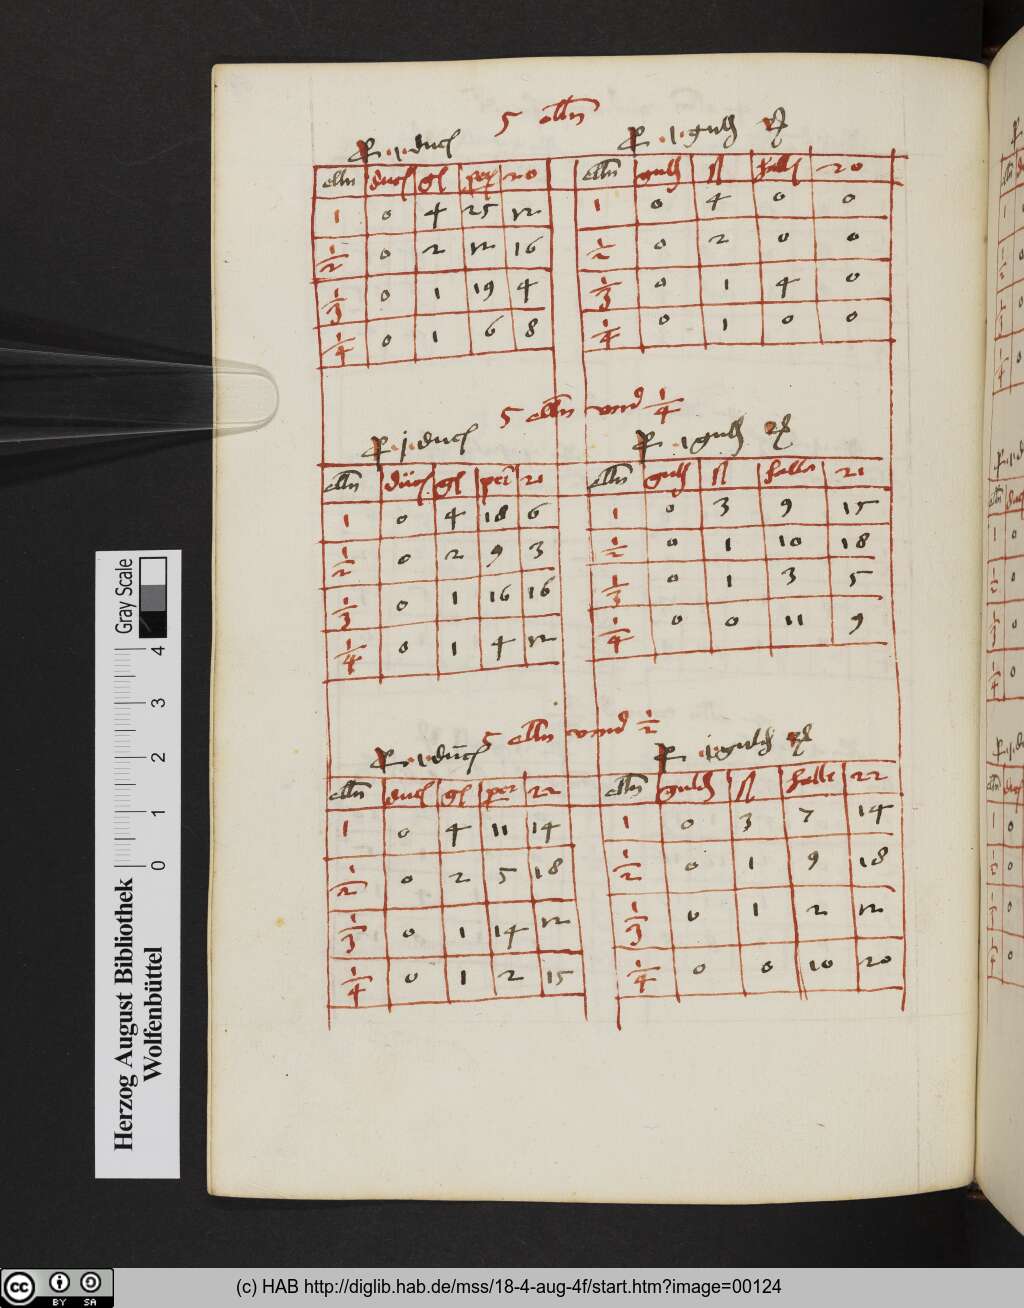 5 elln
1 duc
1 gulh
elln duc gl per 20
1 0 4 25 12
1/2 0 2 12 16
1/3 0 1 19 4
1/4 0 1 6 8
elln gulh hell 20
1 0 4 0 0
1/2 0 2 0 0
1/3 0 1 4 0
1/4 0 1 0 0
5 elln vnd 1/4
1 duc
1 gulh
elln duc gl per 21
1 0 4 18 6
1/2 0 2 9 3
1/3 0 1 16 16
1/4 0 1 4 12
elln gulh helle 21
1 0 3 9 15
1/2 0 1 10 18
1/3 0 1 3 5
1/4 0 0 11 9
5 elln vnnd 1/2
1 duc
1 gulh
elln duc gl per 22
1 0 4 11 14
1/2 0 2 5 18
1/3 0 1 14 12
1/4 0 1 2 15
elln gulh helle 22
1 0 3 7 14
1/2 0 1 9 18
1/3 0 1 2 12
1/4 0 0 10 20
Gray Scale
0 1 2 3 4
Herzog August Bibliothek
Wolfenbüttel
cc BY SA
(c) HAB http://diglib.hab.de/mss/18-4-aug-4f/start.htm?image=00124